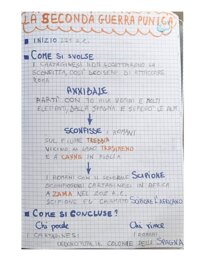 LA SECONDA GUERRA PUNICA
INIZIO 221 A.C.
COME SI SVOLSE
I CARTAGINESI NON ACCETTARONO LA
SCONFITTA, COSÌ DECISERO DI ATTACCARE
ROMA
ANNIBALE
PARTÌ CON 30 MILA UOMINI E MOLTI
ELEFANTI, DALLA SPAGNA E SUPERÒ LE ALPI
SCONFISSE I ROMANI
SUL FIUME TREBBIA
VICINO AL LAGO TRASIMENO
E A CANNE IN PUGLIA
I ROMANI CON IL GENERALE SCIPIONE
SCONFISSERO I CARTAGINESI IN AFRICA
A ZAMA NEL 202 A.C.
SCIPIONE FU CHIAMATO SCIPIONE L'AFRICANO
COME SI CONCLUSE?
Chi perde Chi vince
I CARTAGINESI I ROMANI
LE COLONIE DELLA SPAGNA